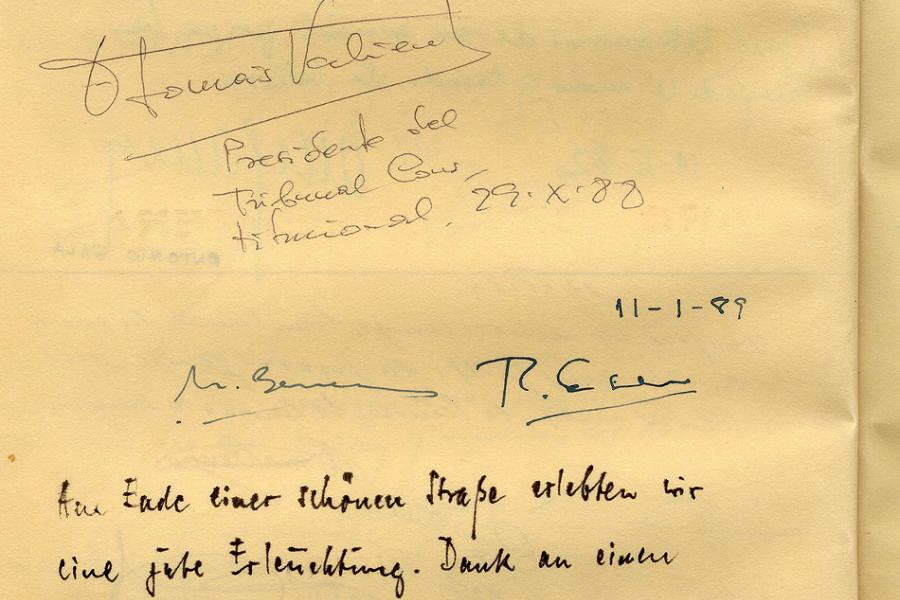 Tomás Valiente
Presidente del
Tribunal Cons-
titucional, 29-X-88
11-1-89
M. R.
Am Ende einer schönen Straße erlebten wir
eine gute Erleuchtung. Dank an einen